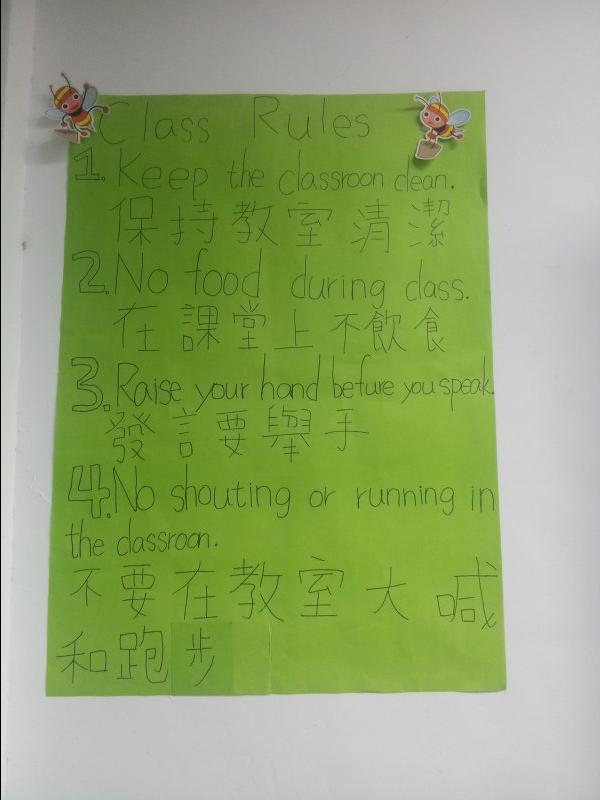 Class Rules
1. Keep the classroon clean.
保持教室清潔
2. No food during class.
在課堂上不飲食
3. Raise your hand before you speak.
發言要舉手
4. No shouting or running in
the classroon.
不要在教室大喊
和跑步